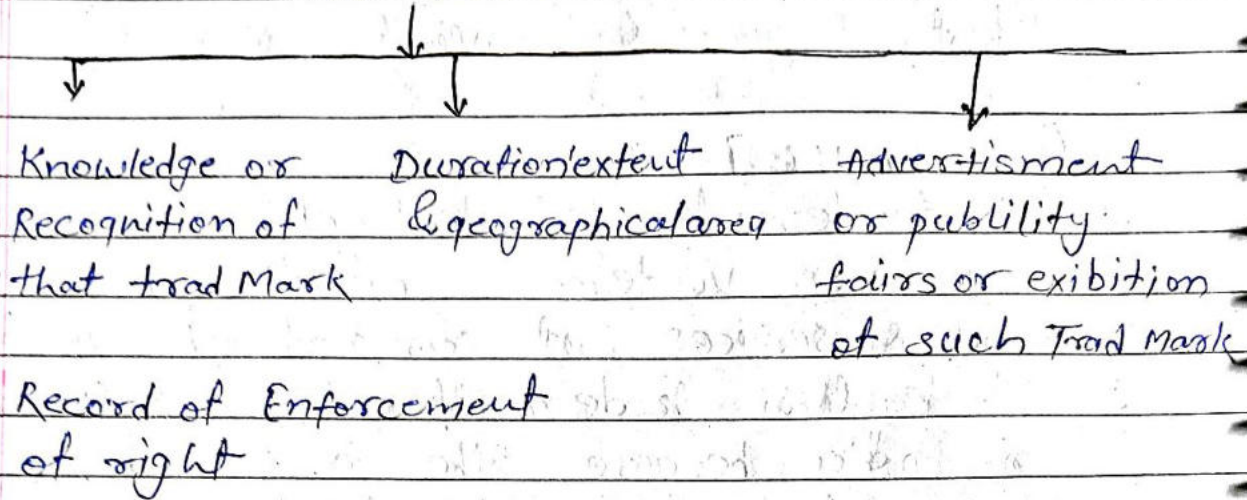 Knowledge or
Recognition of
that trad Mark
Duration'extent
& geographical area
Advertisment
or publility
fairs or exibition
of such Trad Mark
Record of Enforcement
of right